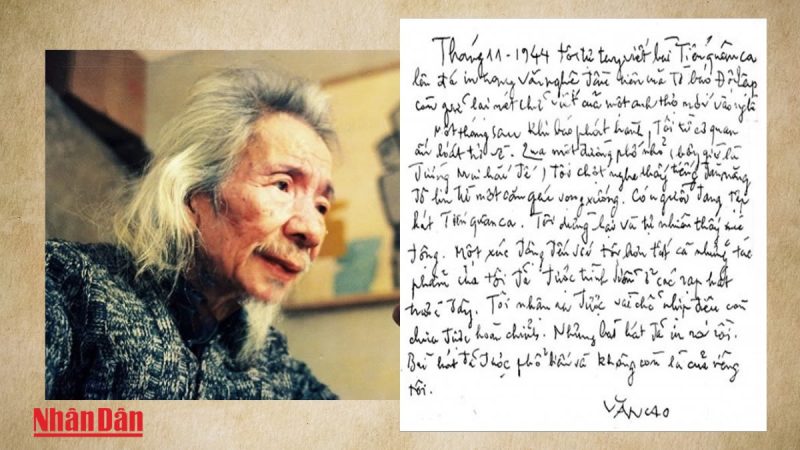 Tháng 11-1944 tôi tự tay viết bài Tiến quân ca
lên đá in trang Văn nghệ đầu tiên của Tờ báo Độc lập
còn giữ lại nét chữ viết của một anh thợ mới vào nghề
Một tháng sau khi báo phát hành, Tôi từ cơ quan
ấn loát trở về. Qua một đường phố nhỏ (bây giờ là
đường Mai hắc đế) Tôi chợt nghe thấy tiếng đàn măng
đô lin từ một căn gác vọng xuống. Có người đang tập
hát Tiến quân ca. Tôi dừng lại và tự nhiên thấy xúc
động. Một xúc động đến với tôi hơn tất cả những tác
phẩm của tôi đã được trình diễn ở các rạp hát
trước đây. Tôi nhận ra được vài chỗ nhịp điệu còn
chưa được hoàn chỉnh. Nhưng bài hát đã in ra rồi.
Bài hát đã được phổ biến và không còn là của riêng
tôi.
VĂN CAO
Nhân Dân